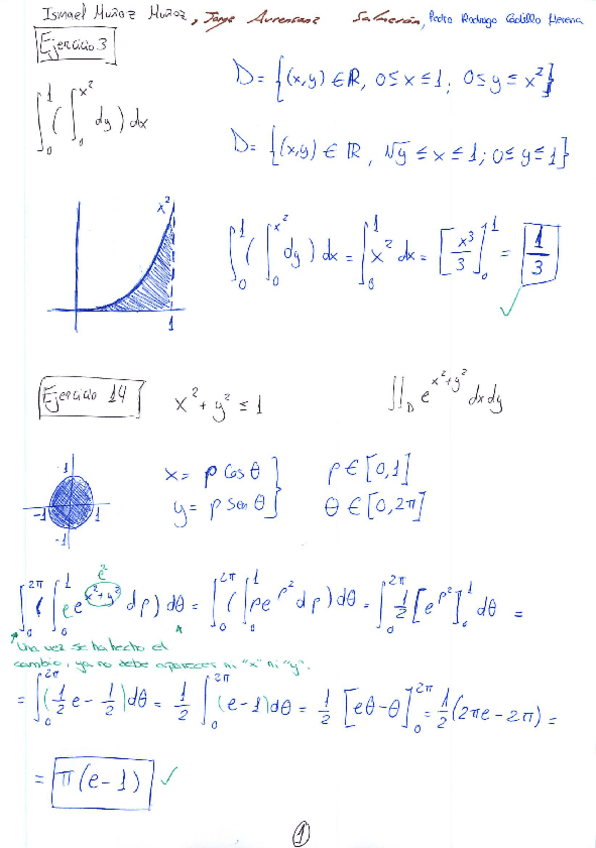 Ismael Muñoz Muñoz, Jorge Salmerón, Pedro Rodrigo Castillo Herena
Ejercicio 3
∫₀¹ ( ∫₀^{x²} dy ) dx
D = { (x,y) ∈ ℝ, 0 ≤ x ≤ 1; 0 ≤ y ≤ x² }
D = { (x,y) ∈ ℝ, √y ≤ x ≤ 1; 0 ≤ y ≤ 1 }
x²
1
∫₀¹ ( ∫₀^{x²} dy ) dx = ∫₀¹ x² dx = [ x³/3 ]₀¹ = 1/3 ✓
Ejercicio 14 x² + y² ≤ 1 ∬_D e^{x²+y²} dxdy
1
-1 1
-1
x = ρ cos θ } ρ ∈ [0,1]
y = ρ sen θ } θ ∈ [0,2π]
ρ²
∫₀^{2π} ( ∫₀¹ ρ e^{x²+y²} dρ ) dθ = ∫₀^{2π} ( ∫₀¹ ρ e^{ρ²} dρ ) dθ = ∫₀^{2π} 1/2 [ e^{ρ²} ]₀¹ dθ =
Una vez se ha hecho el
cambio, ya no debe aparecer ni "x" ni "y".
= ∫₀^{2π} ( 1/2 e - 1/2 ) dθ = 1/2 ∫₀^{2π} (e-1) dθ = 1/2 [ eθ - θ ]₀^{2π} = 1/2 (2πe - 2π) =
= π(e-1) ✓
1